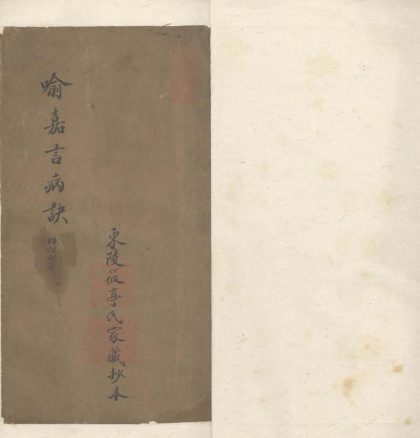 喻嘉言病訣
東陵筱亭氏家藏抄本